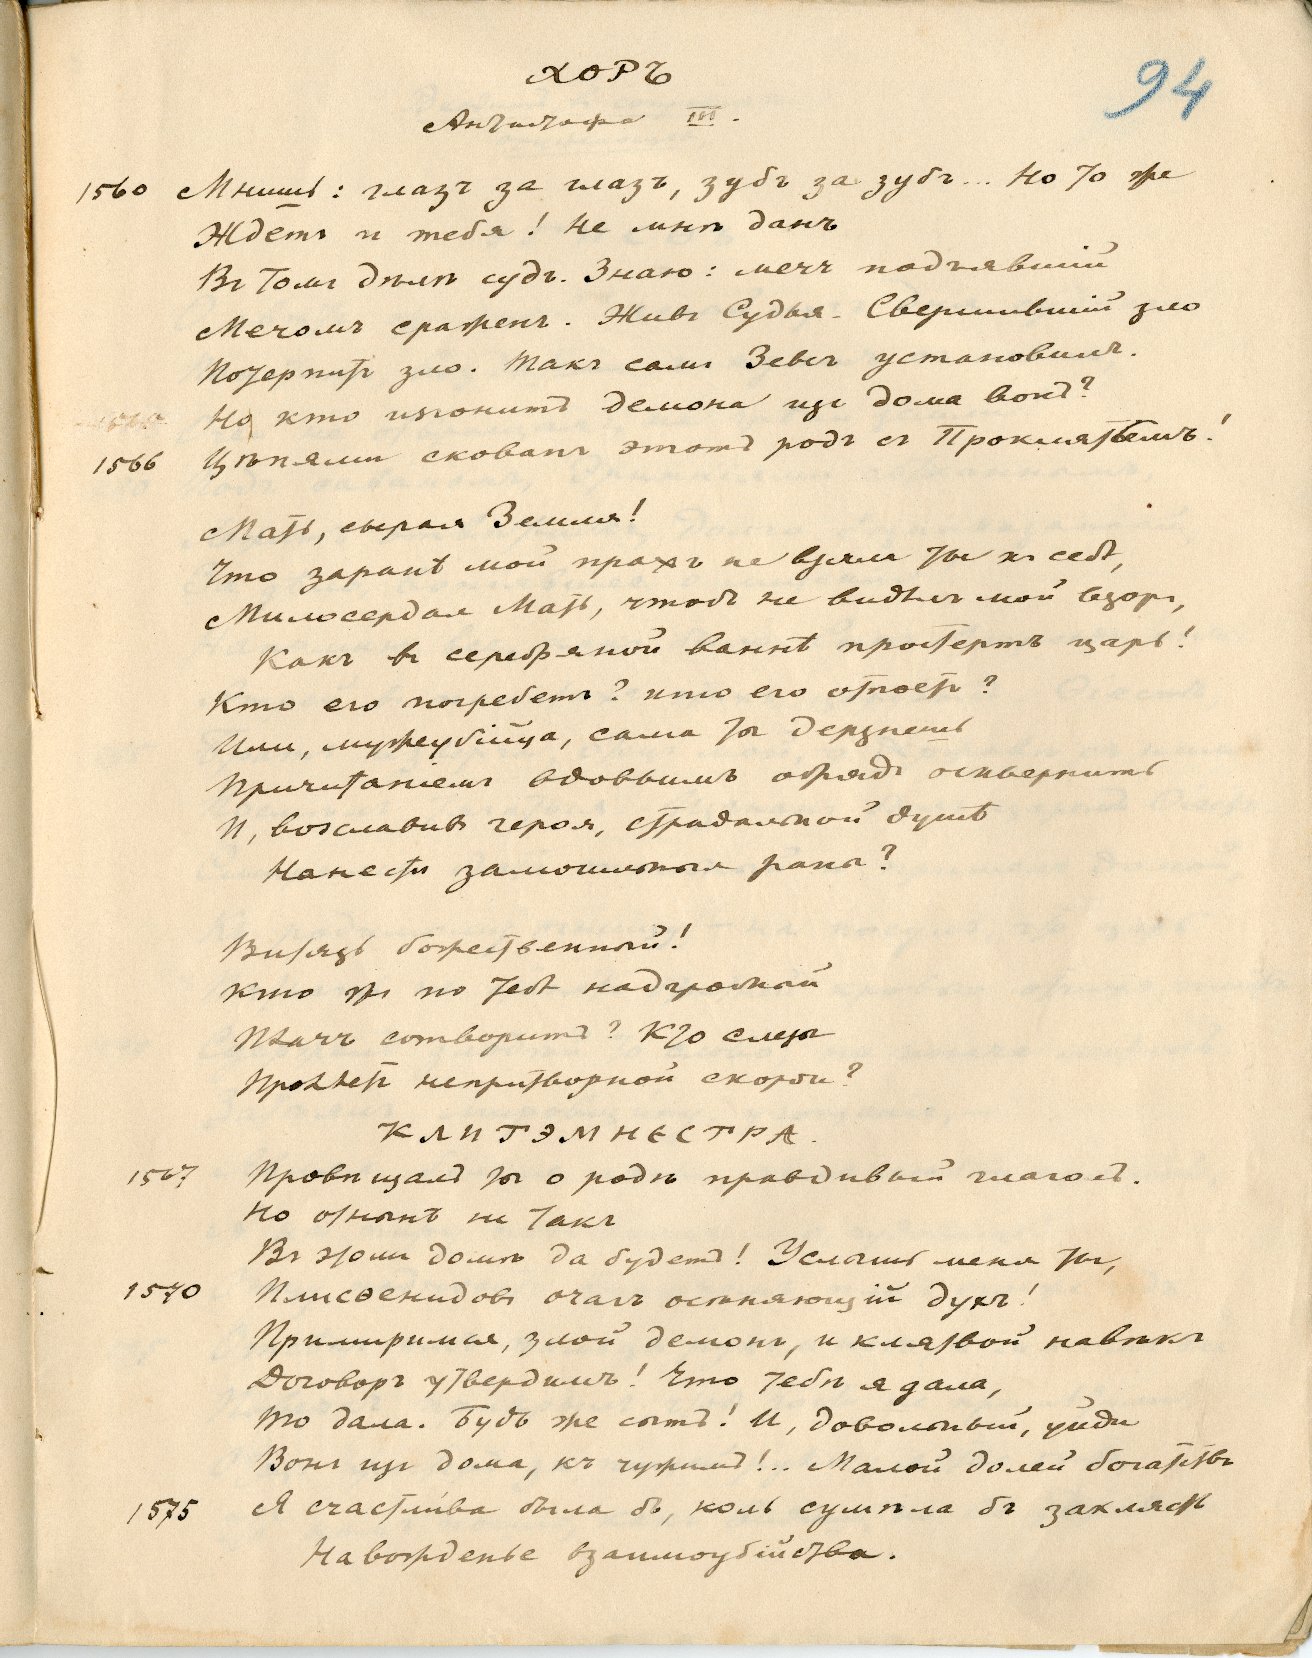 ХОРЪ
94
Антистрофа III.
1560 Мнишь: глазъ за глазъ, зубъ за зубъ... Но то же
Ждетъ и тебя! Не мнѣ данъ
Въ томъ дѣлѣ судъ. Знаю: мечъ подъявшій
Мечомъ сраженъ. Живъ Судья. Свершившій зло
Потерпитъ зло. Такъ самъ Зевсъ установилъ.
Но кто изгонитъ демона изъ дома вонъ?
1566 Цѣпями скованъ этотъ родъ съ Проклятьемъ!
Мать, сырая Земля!
Что заранѣ мой прахъ не взяла ты къ себѣ,
Милосердая Мать, чтобъ не видѣлъ мой взоръ,
Какъ въ серебряной ваннѣ простертъ царь!
Кто его погребетъ? кто его отпоетъ?
Или, мужеубійца, сама ты дерзнешь
Причитаніемъ вдовьимъ обрядъ осквернить
И, возславивъ героя, страдальной душѣ
Нанести замогильныя раны?
Витязь божественный!
Кто жъ по тебѣ надгробный
Плачъ сотворитъ? Кто слезы
Прольетъ непритворной скорби?
КЛИТЭМНЕСТРА.
1567 Провѣщалъ ты о родѣ правдивый глаголъ.
Но отнынѣ не такъ
Въ этомъ домѣ да будетъ! Услышь меня ты,
1570 Плисѳенидовъ очагъ осѣняющій духъ!
Примиримся, злой демонъ, и клятвой навѣкъ
Договоръ утвердимъ! Что тебѣ я дала,
То дала. Будь же сытъ! И, довольный, уйди
Вонъ изъ дома, къ чужимъ!.. Малой долей богатствъ
1575 Я счастлива была бъ, коль сумѣла бъ заклясть
Навожденье взаимоубійства.